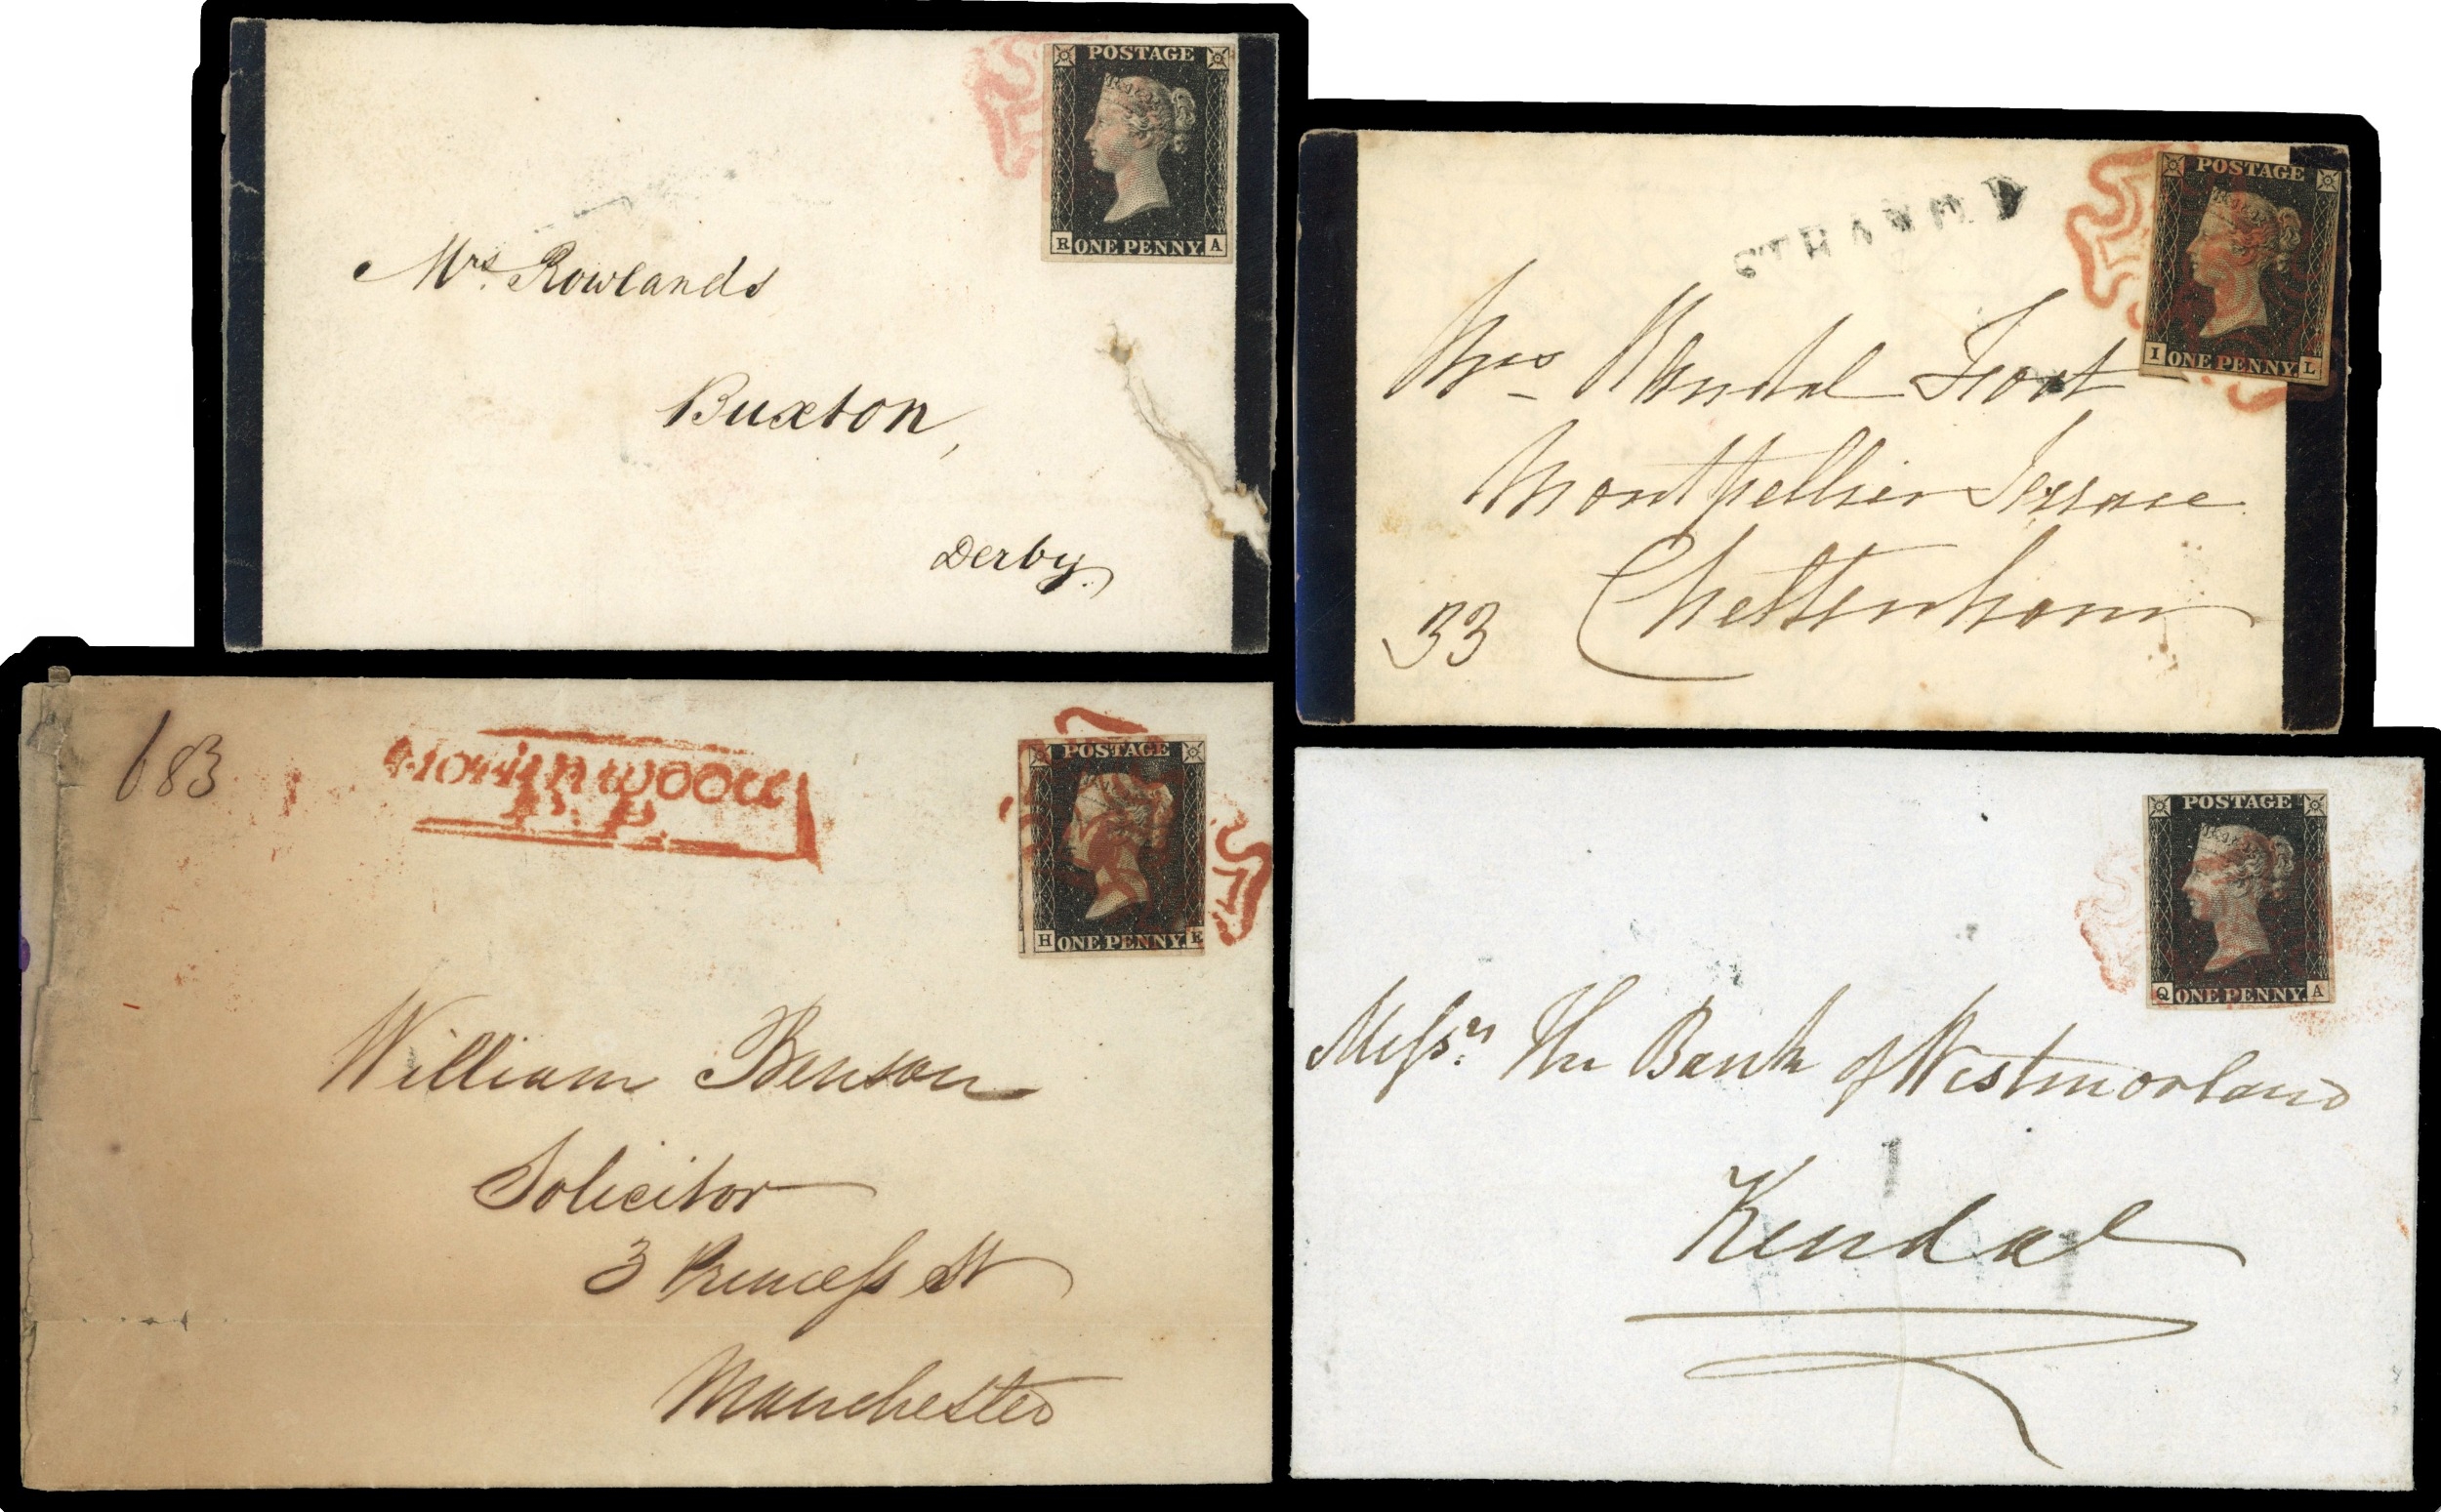 POSTAGE
R ONE PENNY. A
Mrs. Rowlands
Buxton,
Derby.
POSTAGE
I ONE PENNY. L
Mrs
Montpellier Terrace
Cheltenham
33
683
P.P.
POSTAGE
H ONE PENNY. E
William Benson
Solicitor
3 Princess St
Manchester
POSTAGE
Q ONE PENNY. A
Messrs. The Bank of Westmorland
1
Kendal